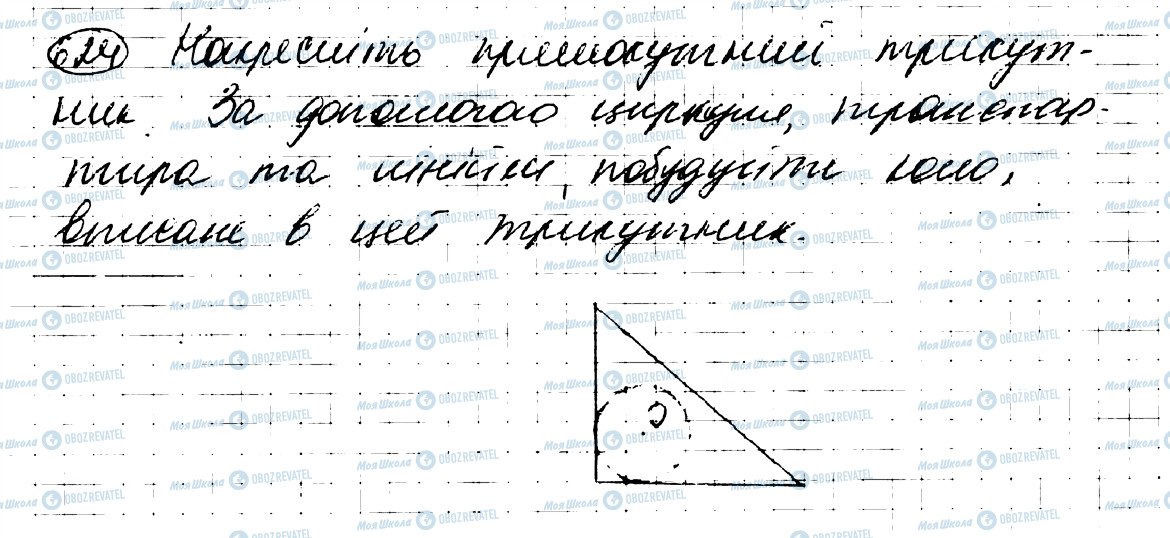 624 Накресліть прямокутний трикут-
ник. За допомогою циркуля, транспор-
тира та лінійки, побудуйте коло,
вписане в цей трикутник.
О